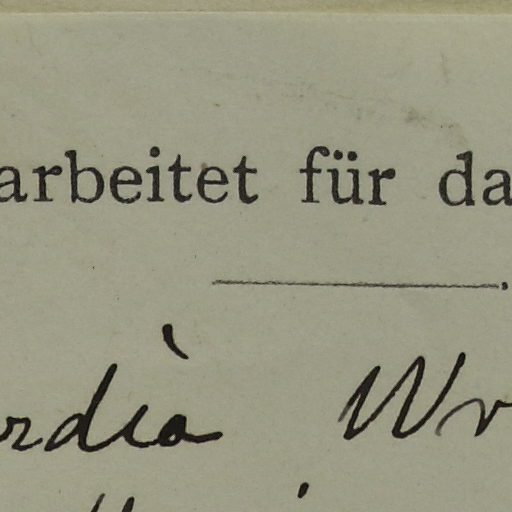 arbeitet für da
rdia Wr